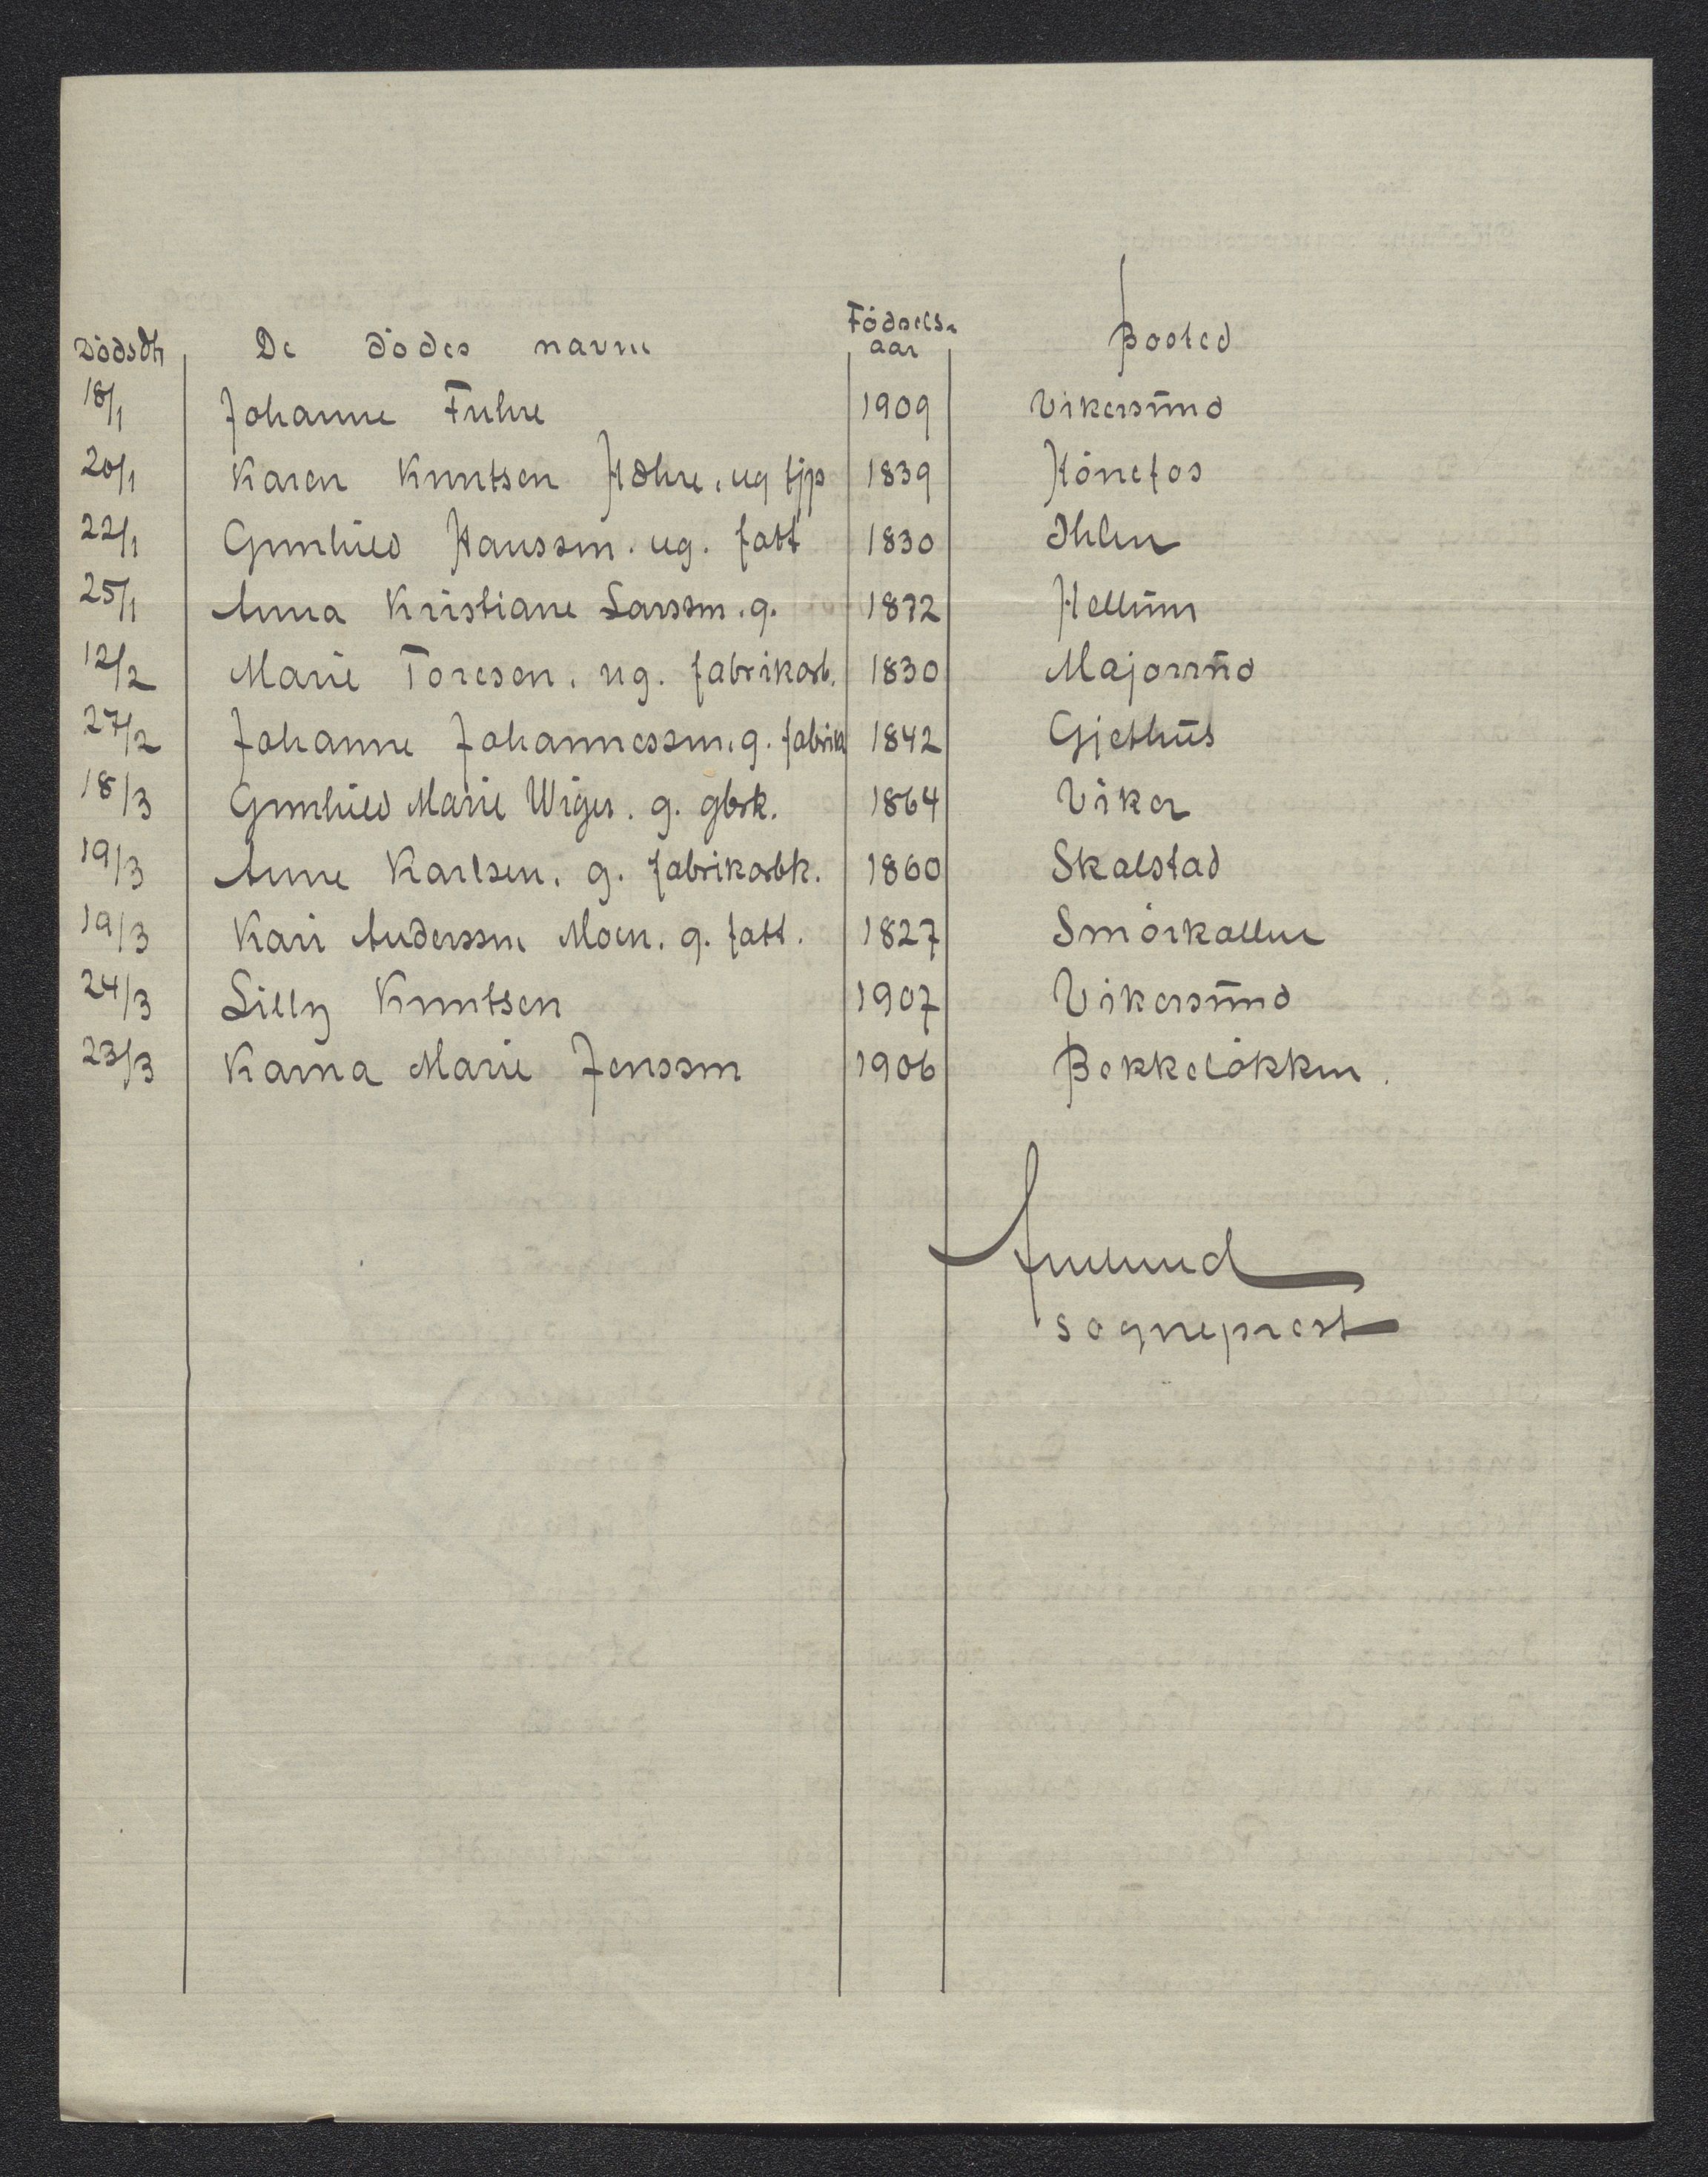 Fødsels-
Dødsdt De dødes navne aar Bosted
18/1 Johanne Fuhre 1909 Vikersund
20/1 Karen Knutsen ug tjp 1839 Hønefos
22/1 Gunhild Hanssen. ug. fatt 1830 Ihlen
25/1 Anna Kristiane Larssen. g. 1872 Hellum
12/2 Marie Toresen. ug. fabrikarb. 1830 Majorund
27/2 Johanne Johannessen. g. fabrika 1842 Gjethus
18/3 Gunhild Marie Wiger. g. gbrk. 1864 Viker
19/3 Anne Karlsen. g. fabrikarbk. 1860 Skalstad
19/3 Kari Anderssen Moen. g. fatt. 1827 Smørkollen
24/3 Lilly Knutsen 1907 Vikersund
23/3 Karna Marie Jenssen 1906 Bekkeløkken.
sogneprest